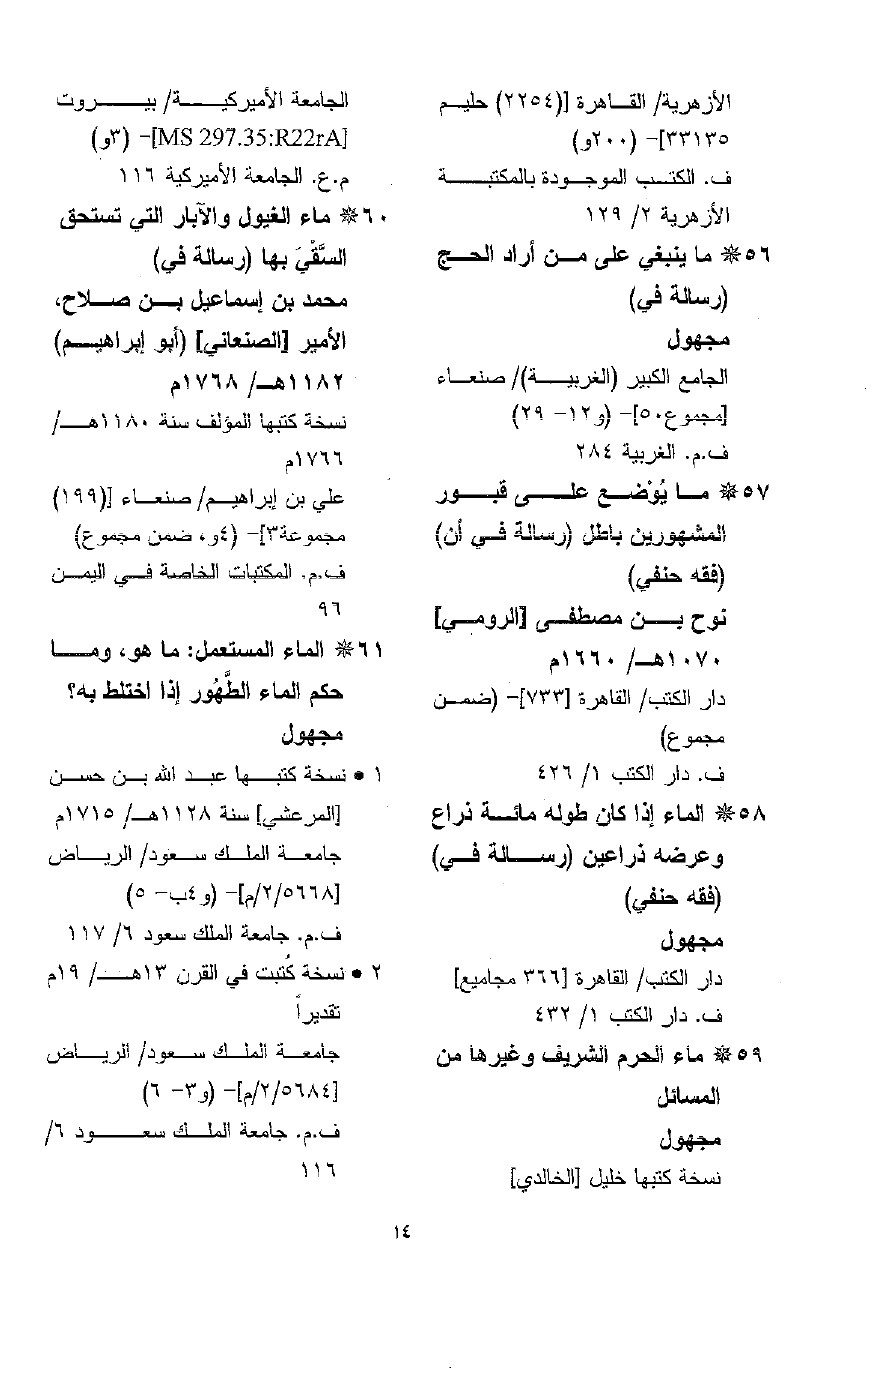 الأزهرية/ القاهرة [(٢٢٥٤) حليم
٣٣١٣٥]– (٢٠٠و)
ف. الكتب الموجودة بالمكتبة
الأزهرية ٢/ ١٢٩
٥٦❋ ما ينبغي على من أراد الحج
(رسالة في)
مجهول
الجامع الكبير (الغربية)/ صنعاء
[مجموع٥٠]– (و١٢– ٢٩)
ف.م. الغربية ٢٨٤
٥٧❋ ما يُوْضع على قبور
المشهورين باطل (رسالة في أن)
(فقه حنفي)
نوح بن مصطفى [الرومي]
١٠٧٠هـ/ ١٦٦٠م
دار الكتب/ القاهرة [٧٣٣]– (ضمن
مجموع)
ف. دار الكتب ١/ ٤٢٦
٥٨❋ الماء إذا كان طوله مائة ذراع
وعرضه ذراعين (رسالة في)
(فقه حنفي)
مجهول
دار الكتب/ القاهرة [٣٦٦ مجاميع]
ف. دار الكتب ١/ ٤٣٢
٥٩❋ ماء الحرم الشريف وغيرها من
المسائل
مجهول
نسخة كتبها خليل [الخالدي]
الجامعة الأميركية/ بيروت
[MS 297.35:R22rA]– (٣و)
م.ع. الجامعة الأميركية ١١٦
٦٠❋ ماء الغيول والآبار التي تستحق
السَّقْيَ بها (رسالة في)
محمد بن إسماعيل بن صلاح،
الأمير [الصنعاني] (أبو إبراهيم)
١١٨٢هـ/ ١٧٦٨م
نسخة كتبها المؤلف سنة ١١٨٠هـ/
١٧٦٦م
علي بن إبراهيم/ صنعاء [(١٩٩)
مجموعة٣]– (٤و، ضمن مجموع)
ف.م. المكتبات الخاصة في اليمن
٩٦
٦١❋ الماء المستعمل: ما هو، وما
حكم الماء الطَّهُور إذا اختلط به؟
مجهول
١ • نسخة كتبها عبد الله بن حسن
[المرعشي] سنة ١١٢٨هـ/ ١٧١٥م
جامعة الملك سعود/ الرياض
[٢/٥٦٦٨/م]– (و٤ب– ٥)
ف.م. جامعة الملك سعود ٦/ ١١٧
٢ • نسخة كُتبت في القرن ١٣هـ/ ١٩م
تقديراً
جامعة الملك سعود/ الرياض
[٢/٥٦٨٤/م]– (و٣– ٦)
ف.م. جامعة الملك سعود ٦/
١١٦
١٤